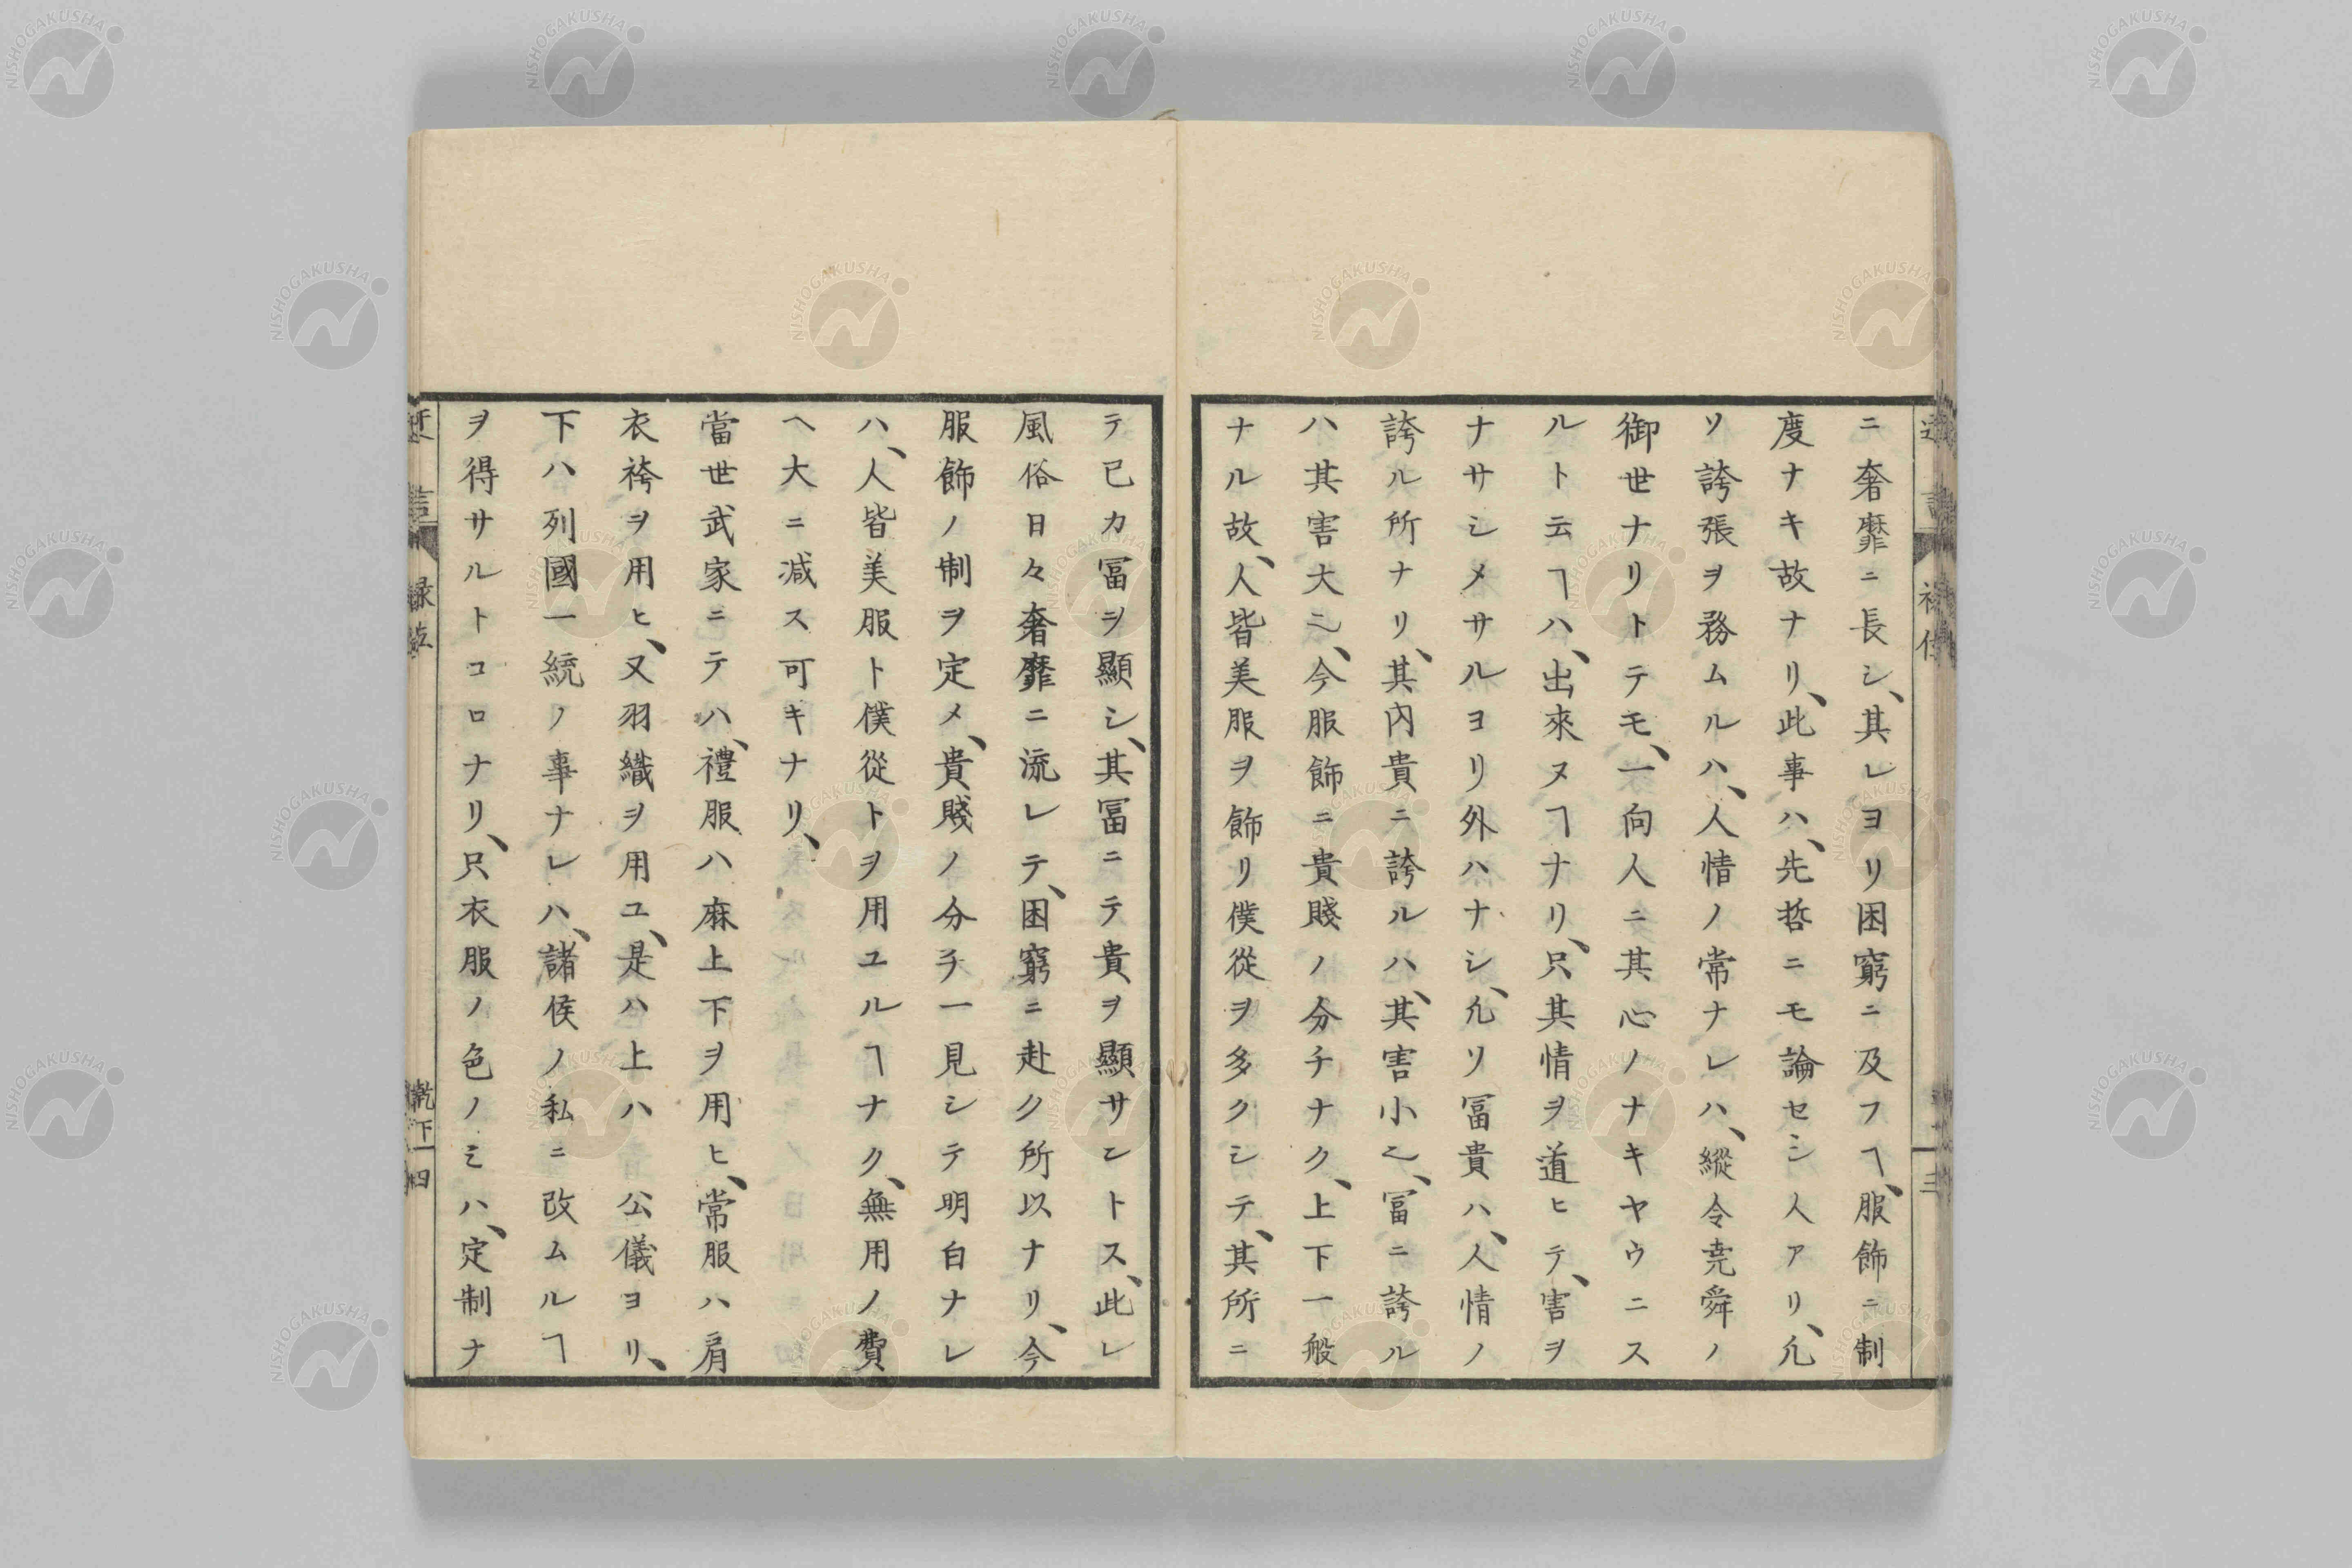 ニ奢靡ニ長シ、其レヨリ困窮ニ及フヿ、服飾ニ制
度ナキ故ナリ、此事ハ、先哲ニモ論セシ人アリ、凢
ソ誇張ヲ務ムルハ、人情ノ常ナレハ、縱令尭舜ノ
御世ナリトテモ、一向人ニ其心ノナキヤウニス
ルト云ヿハ、出來ヌヿナリ、只其情ヲ道ヒテ、害ヲ
ナサシメサルヨリ外ハナシ、凢ソ冨貴ハ、人情ノ
誇ル所ナリ、其内貴ニ誇ルハ、其害小乙、冨ニ誇ル
ハ其害大ニ、今服飾ニ貴賤ノ分チナク、上下一般
ナル故、人皆美服ヲ飾リ僕從ヲ多クシテ、其所ニ
テ已カ冨ヲ顯シ、其冨ニテ貴ヲ顯サントス、此レ
風俗日々奢靡ニ流レテ、困窮ニ赴ク所以ナリ、今
服飾ノ制ヲ定メ、貴賤ノ分チ一見シテ明白ナレ
ハ、人皆美服ト僕從トヲ用ユルヿナク、無用ノ費
ヘ大ニ减ス可キナリ、
當世武家ニテハ、禮服ハ麻上下ヲ用ヒ、常服ハ肩
衣袴ヲ用ヒ、又羽織ヲ用ユ、是ハ上ハ 公儀ヨリ、
下ハ列國一統ノ事ナレハ、諸侯ノ私ニ改ムルヿ
ヲ得サルトコロナリ、只衣服ノ色ノミハ、定制ナ
乾下 四
NISHOGAKUSHA